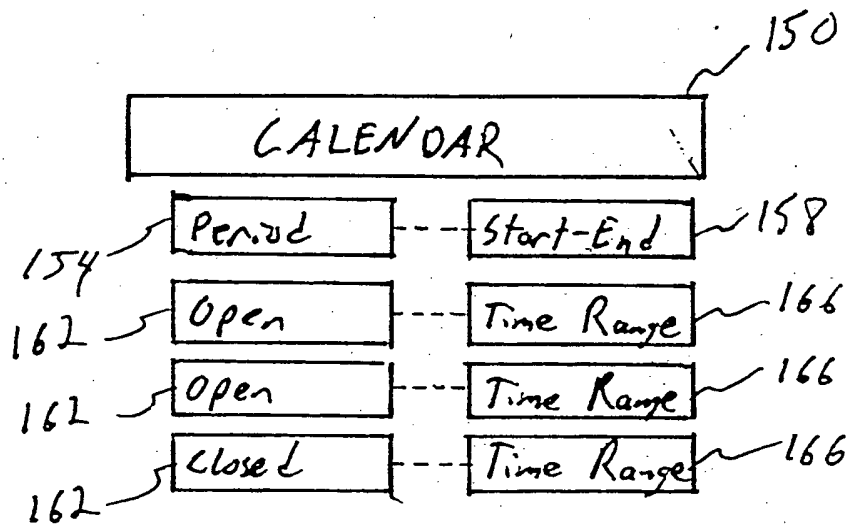 150
CALENDAR
154 Period Start-End 158
162 Open Time Range 166
162 Open Time Range 166
162 Closed Time Range 166